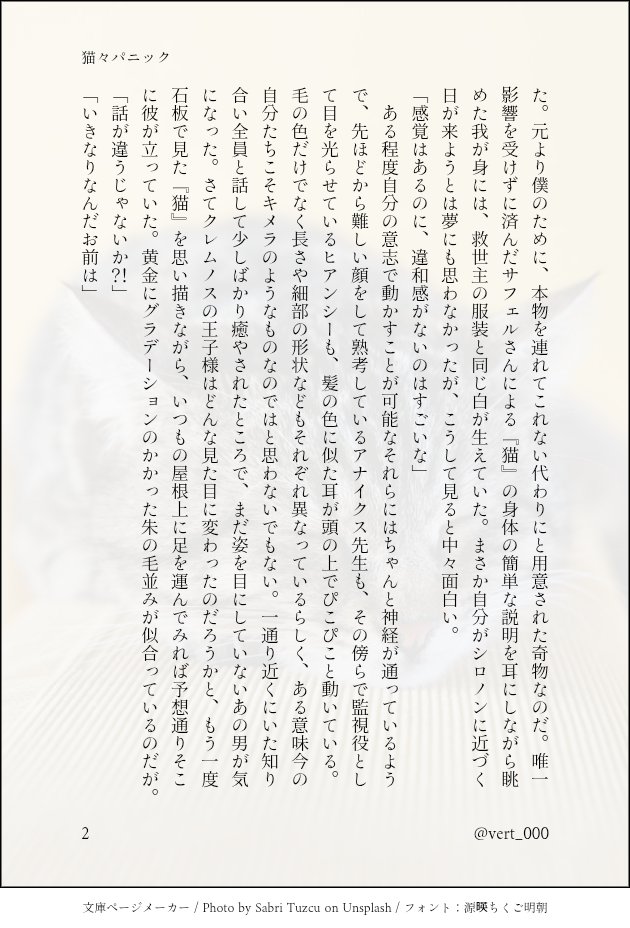 猫々パニック
た。元より僕のために、本物を連れてこれない代わりにと用意された奇物なのだ。唯一
影響を受けずに済んだサフェルさんによる『猫』の身体の簡単な説明を耳にしながら眺
めた我が身には、救世主の服装と同じ白が生えていた。まさか自分がシロノンに近づく
日が来ようとは夢にも思わなかったが、こうして見ると中々面白い。
「感覚はあるのに、違和感がないのはすごいな」
　ある程度自分の意志で動かすことが可能なそれらにはちゃんと神経が通っているよう
で、先ほどから難しい顔をして熟考しているアナイクス先生も、その傍らで監視役とし
て目を光らせているヒアンシーも、髪の色に似た耳が頭の上でぴこぴこと動いている。
毛の色だけでなく長さや細部の形状などもそれぞれ異なっているらしく、ある意味今の
自分たちこそキメラのようなものなのではと思わないでもない。一通り近くにいた知り
合い全員と話して少しばかり癒やされたところで、まだ姿を目にしていないあの男が気
になった。さてクレムノスの王子様はどんな見た目に変わったのだろうかと、もう一度
石板で見た『猫』を思い描きながら、いつもの屋根上に足を運んでみれば予想通りそこ
に彼が立っていた。黄金にグラデーションのかかった朱の毛並みが似合っているのだが。
「話が違うじゃないか?!」
「いきなりなんだお前は」
2
@vert_000
文庫ページメーカー / Photo by Sabri Tuzcu on Unsplash / フォント：源暎ちくご明朝